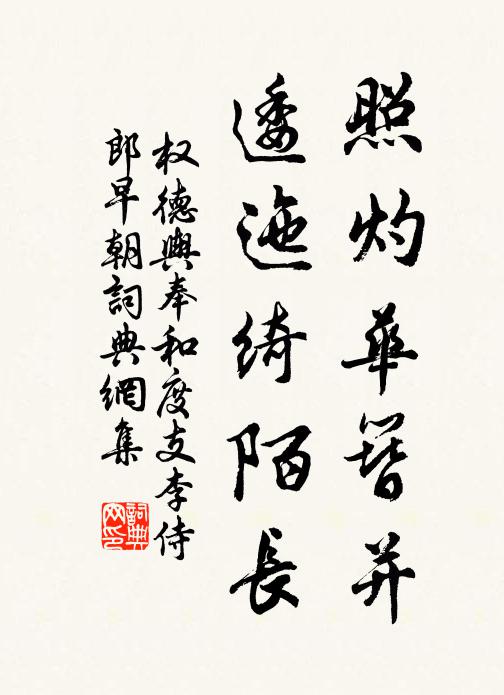 照灼華簪并
逶迤綺陌長
权德輿奉和度支李侍
郎早朝詞典網集
詞典网印